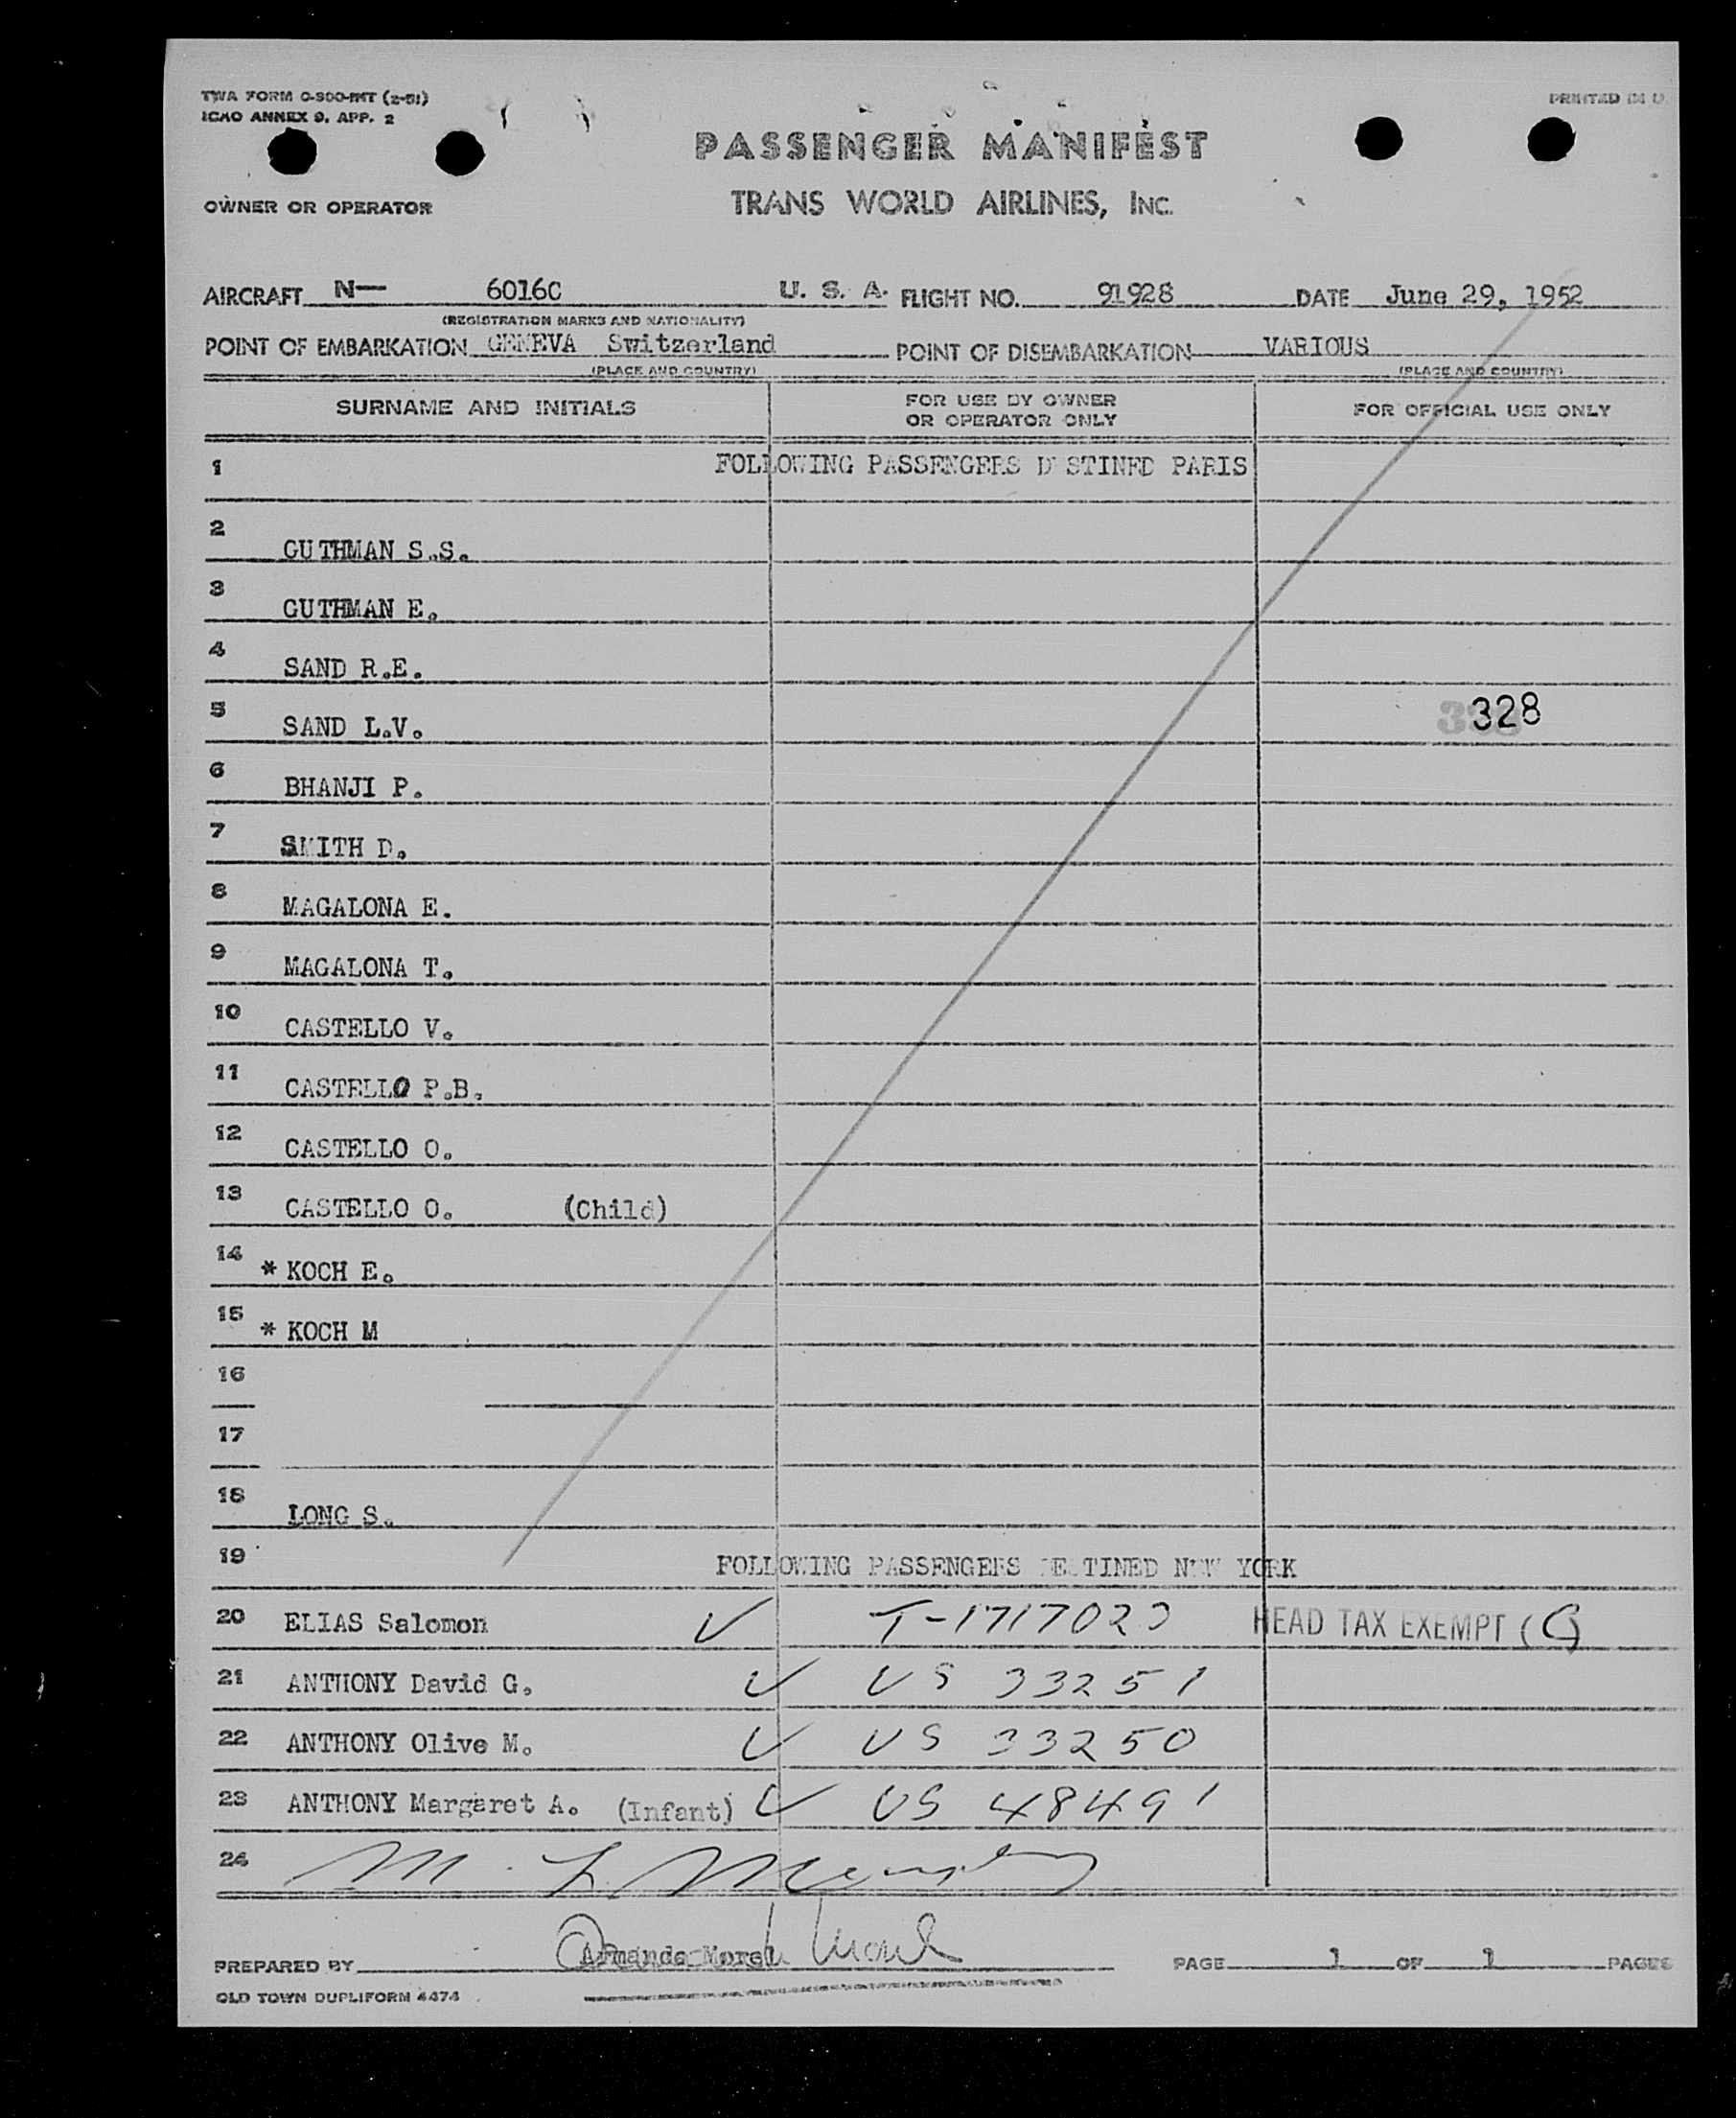 TWA FORM O-900-INT (2-51)
ICAO ANNEX 9, APP. 2
PRINTED IN U
PASSENGER MANIFEST
OWNER OR OPERATOR
TRANS WORLD AIRLINES, INC.
AIRCRAFT N— 6016C U. S. A. FLIGHT NO. 91928 DATE June 29, 1952
(REGISTRATION MARKS AND NATIONALITY)
POINT OF EMBARKATION GENEVA Switzerland POINT OF DISEMBARKATION VARIOUS
(PLACE AND COUNTRY) (PLACE AND COUNTRY)
SURNAME AND INITIALS FOR USE BY OWNER OR OPERATOR ONLY FOR OFFICIAL USE ONLY
1 FOLLOWING PASSENGERS D STINED PARIS
2 GUTHMAN S.S.
3 GUTHMAN E.
4 SAND R.E.
5 SAND L.V. 328
6 BHANJI P.
7 SMITH D.
8 MAGALONA E.
9 MAGALONA T.
10 CASTELLO V.
11 CASTELLO P.B.
12 CASTELLO O.
13 CASTELLO O. (Child)
14 * KOCH E.
15 * KOCH M
16
17
18 LONG S.
19 FOLLOWING PASSENGERS DESTINED NEW YORK
20 ELIAS Salomon ✓ T-1717023 HEAD TAX EXEMPT (G)
21 ANTHONY David G. ✓ US 33251
22 ANTHONY Olive M. ✓ US 33250
23 ANTHONY Margaret A. (Infant) ✓ US 48491
24 M. L. Murphy
PREPARED BY Armande Morel PAGE 1 OF 1 PAGES
OLD TOWN DUPLIFORM 4474